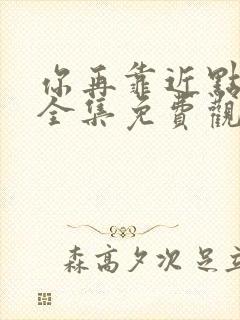 你再靠近點
全集免費觀
森高夕次 足立